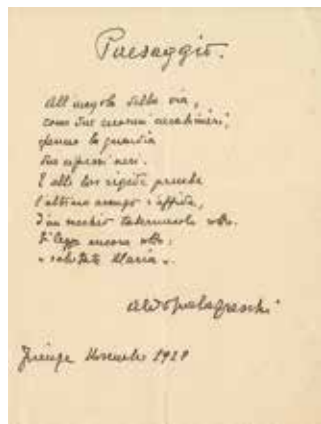 Paesaggio.
All'angolo della via,
come due enormi carabinieri,
fanno la guardia
due cipressi neri.
E alle lor rigide
l'ultimo avanzo s'affida,
d'un vecchio tabernacolo
Si legge ancora sotto:
« salutate Maria ».
Aldo Palazzeschi
Firenze Novembre